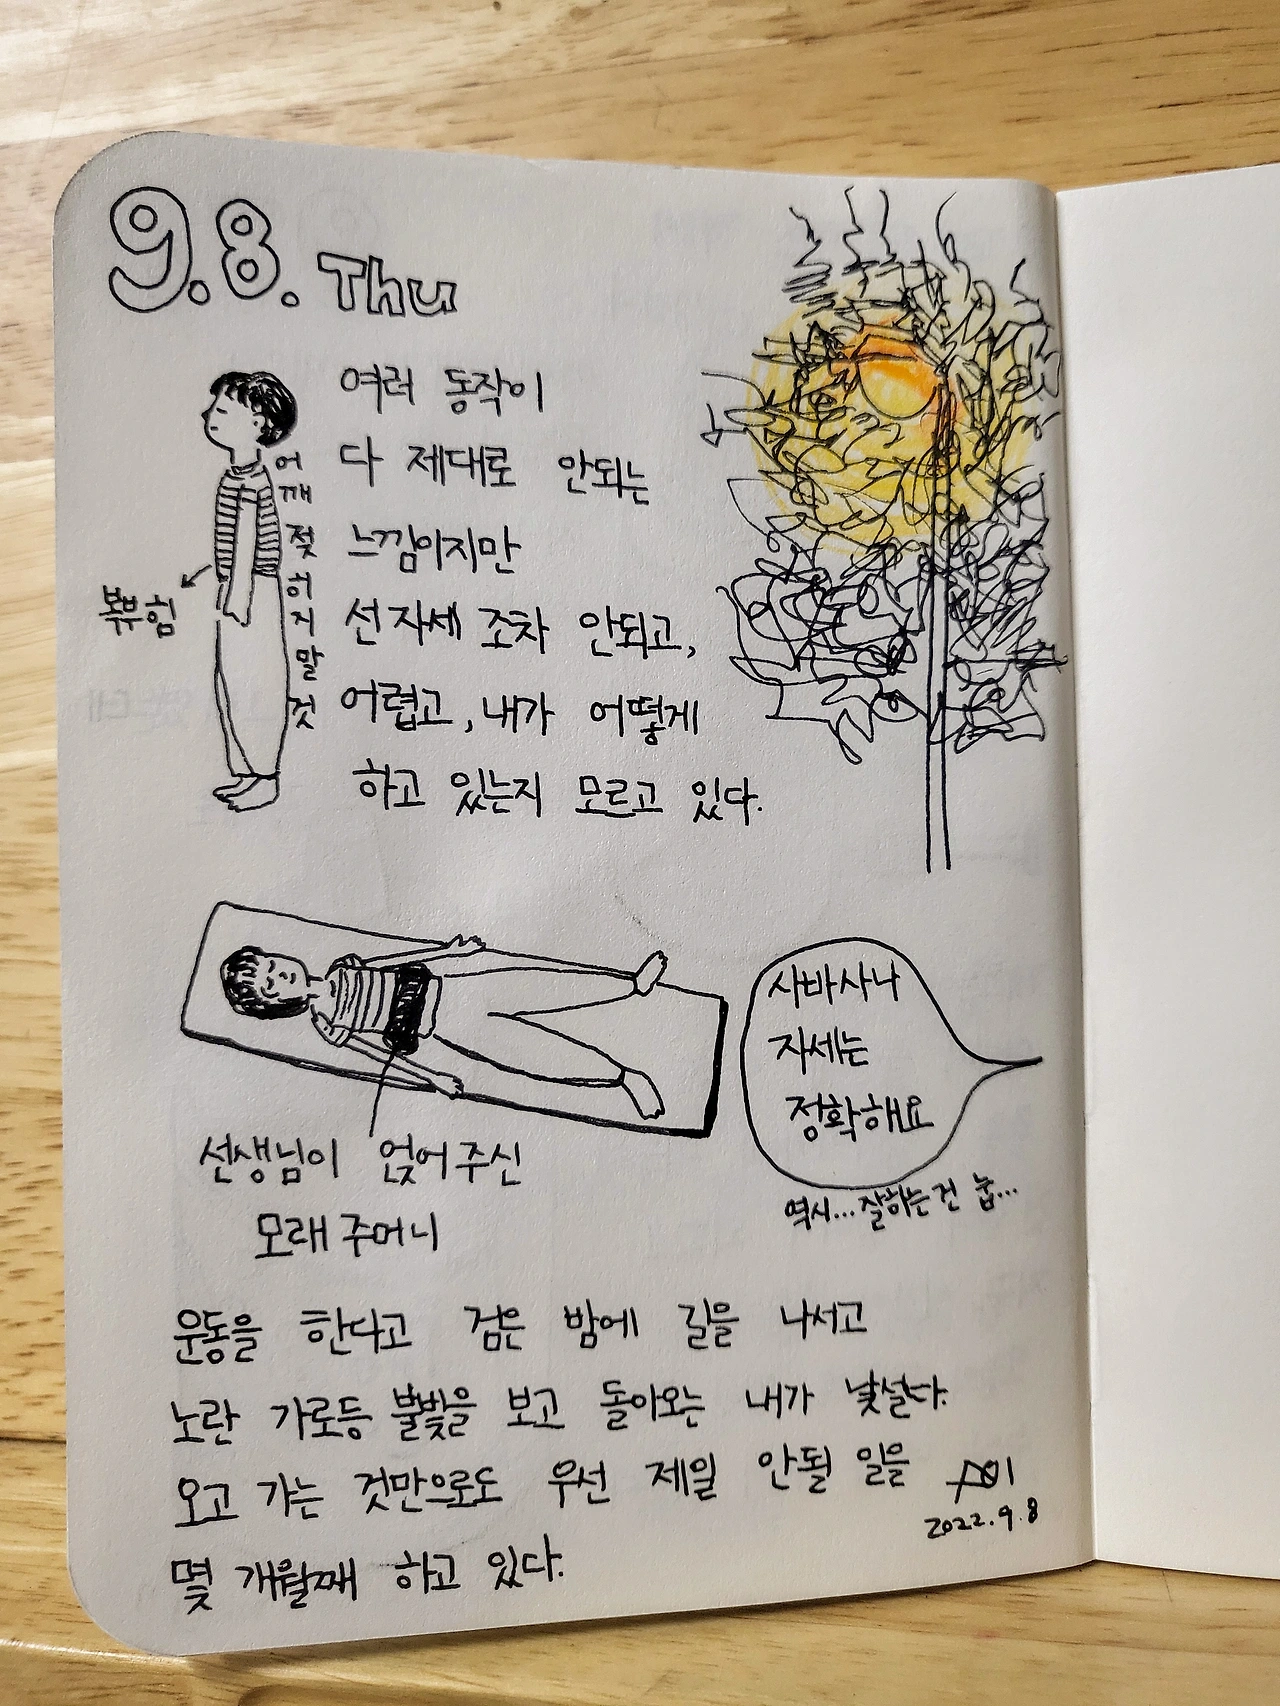 9.8. Thu
여러 동작이
다 제대로 안되는
느낌이지만
선 자세 조차 안되고,
어렵고, 내가 어떻게
하고 있는지 모르고 있다.
어깨 젖히지 말 것
복부힘
사바사나
자세는
정확해요
역시... 잘하는 건 눕...
선생님이 얹어 주신
모래 주머니
운동을 한다고 검은 밤에 길을 나서고
노란 가로등 불빛을 보고 돌아오는 내가 낯설다.
오고 가는 것만으로도 우선 제일 안될 일을
몇 개월째 하고 있다.
2022.9.8